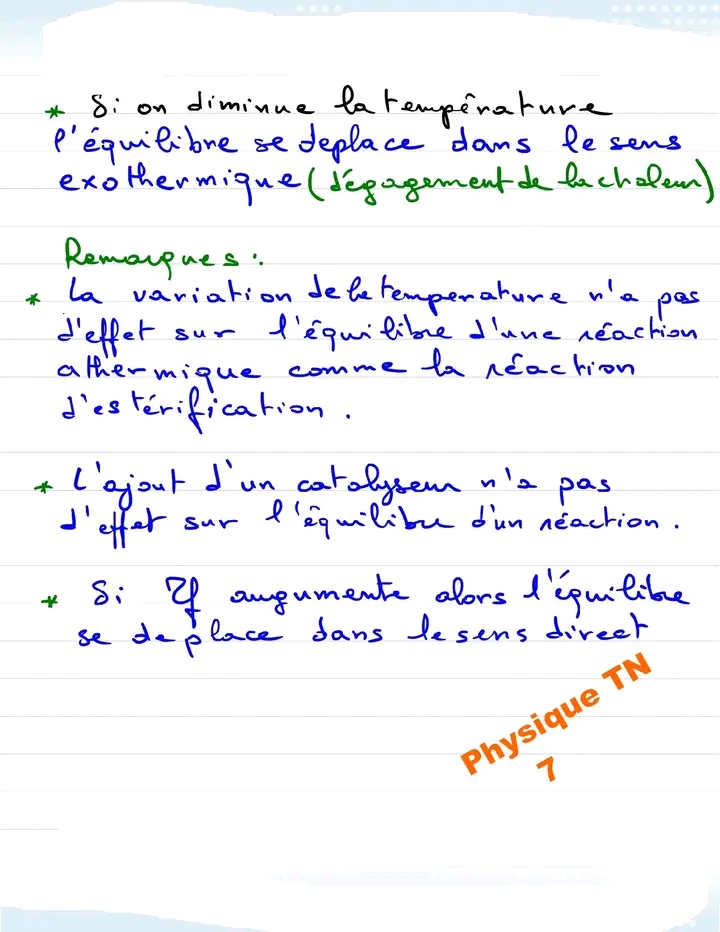 * Si on diminue la température
l'équilibre se deplace dans le sens
exothermique (dégagement de la chaleur)
Remarques :
* La variation de la temperature n'a pas
d'effet sur l'équilibre d'une réaction
athermique comme la réaction
d'estérification .
* L'ajout d'un catalyseur n'a pas
d'effet sur l'équilibre d'un réaction .
* Si τf augumente alors l'équilibre
se deplace dans le sens direct
Physique TN
7